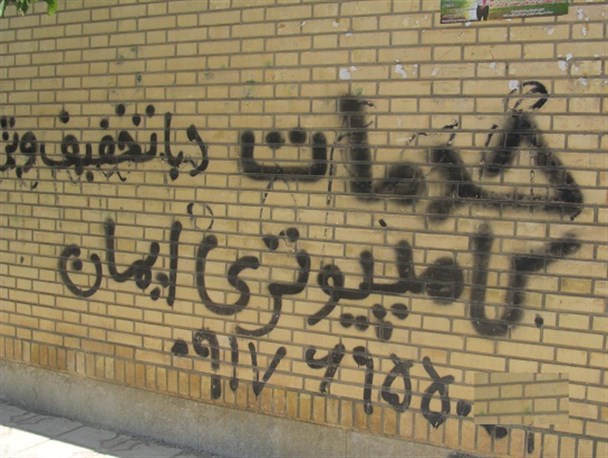 خدمات (با تخفیف ویژ
کامپیوتری ایمان
۰۹۱۷ ۶۹۵۵